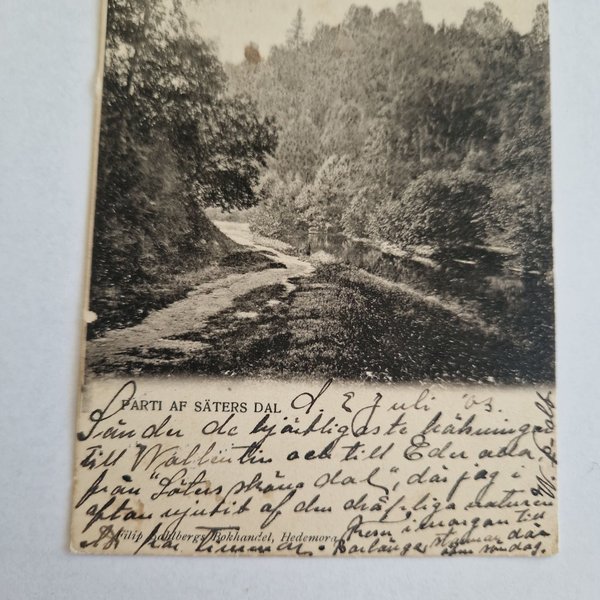 PARTI AF SÄTERS DAL d. 2 Juli 03.
Sänder de hjärtligaste hälsningar
till Wallentin och till Eder alla
från "Säters sköna dal", där jag i
afton njutit af den naturen
Filip Bokhandel, Hedemora
Reser i morgon till
Borlänge, stannar där
söndag.